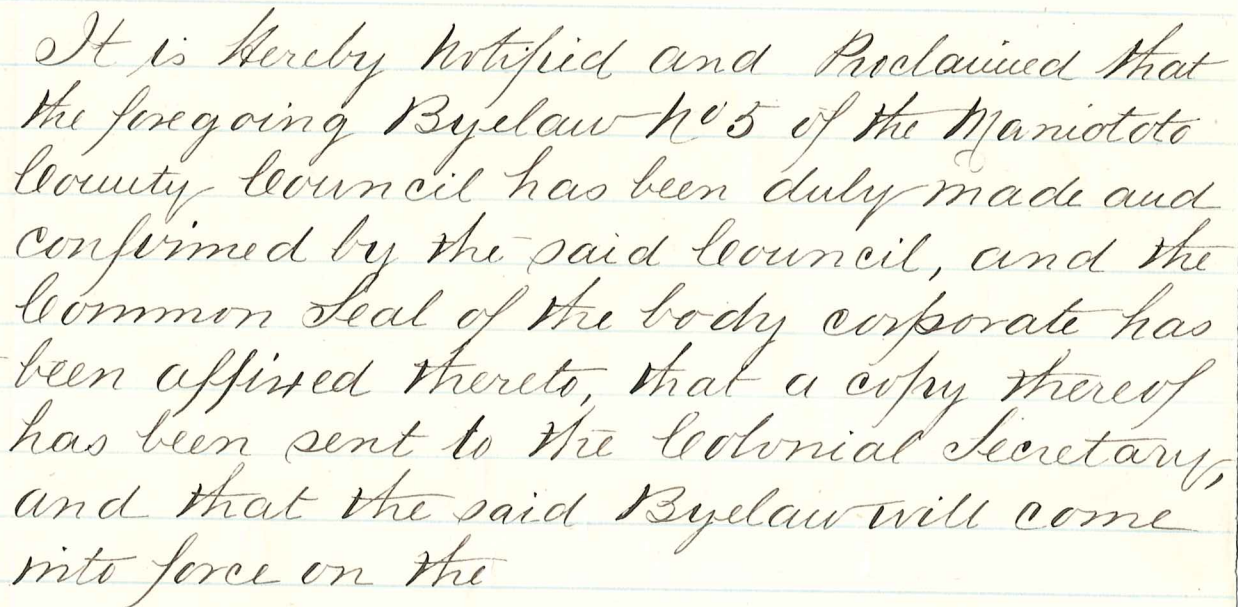 It is Hereby Notified and Proclaimed that
the foregoing Byelaw No 5 of the Maniototo
County Council has been duly made and
confirmed by the said Council, and the
Common Seal of the body corporate has
been affixed thereto, that a copy thereof
has been sent to the Colonial Secretary,
and that the said Byelaw will come
into force on the